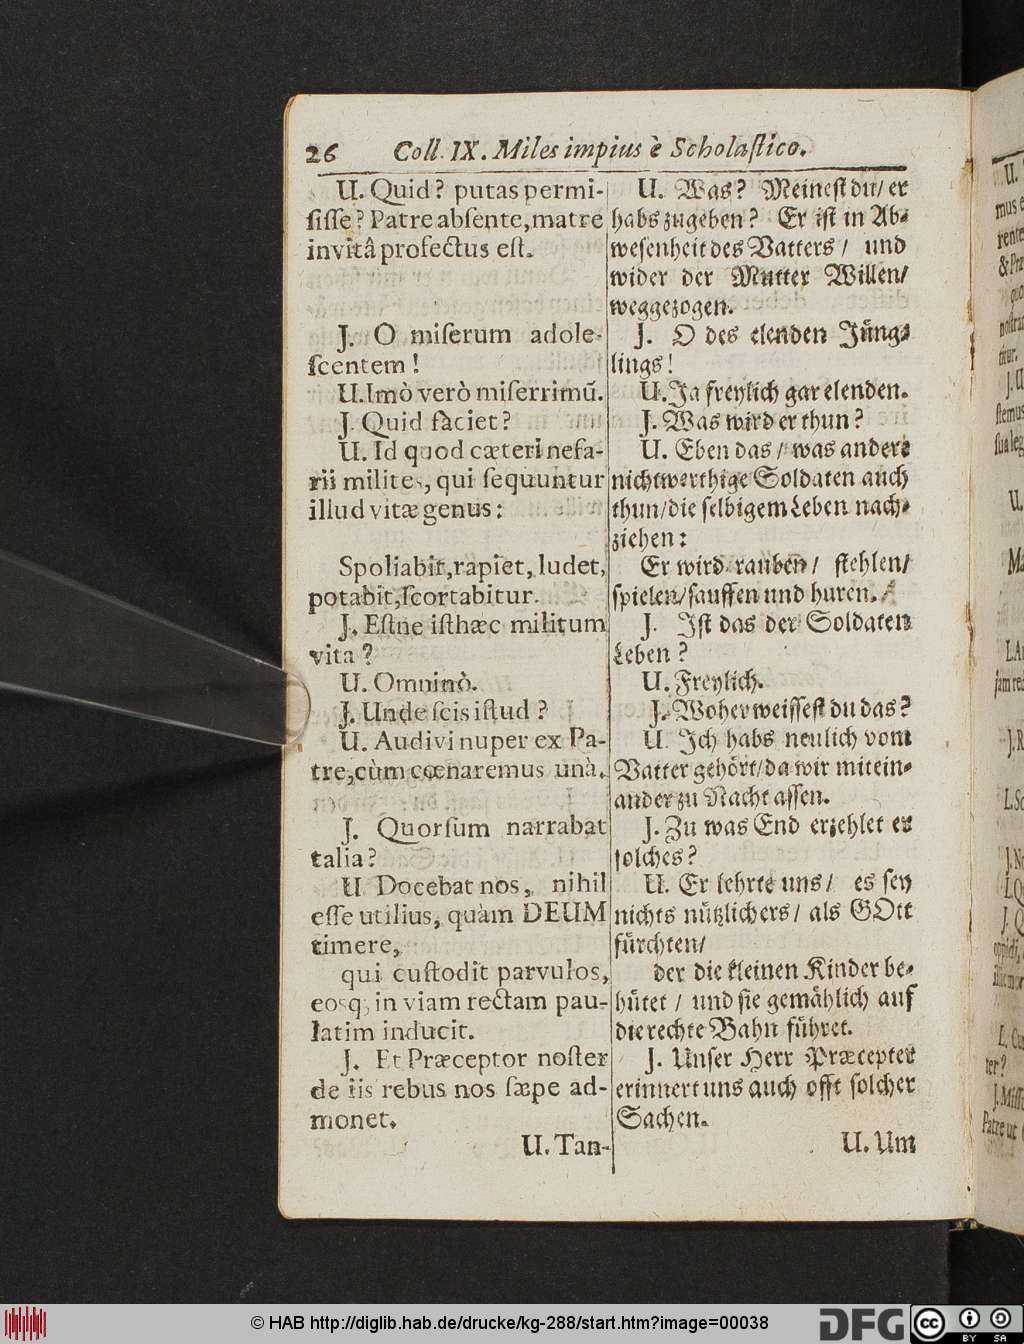 26 Coll. IX. Miles impius è Scholaſtico.
U. Quid? putas permi-
ſiſſe? Patre abſente, matre
invitâ profectus eſt.
J. O miſerum adole-
ſcentem!
U. Imò verò miſerrimũ.
J. Quid faciet?
U. Id quod cæteri nefa-
rii milites, qui ſequuntur
illud vitæ genus:
Spoliabit, rapiet, ludet,
potabit, ſcortabitur.
J. Eſtne iſthæc militum
vita?
U. Omninò.
J. Unde ſcis iſtud?
U. Audivi nuper ex Pa-
tre, cùm cœnaremus unà.
J. Quorſum narrabat
talia?
U. Docebat nos, nihil
eſſe utilius, quàm DEUM
timere,
qui cuſtodit parvulos,
eosq; in viam rectam pau-
latim inducit.
J. Et Præceptor noſter
de iis rebus nos ſæpe ad-
monet.
U. Tan-
U. Was? Meineſt du/ er
habs zugeben? Er iſt in Ab-
weſenheit des Vatters/ und
wider der Mutter Willen/
weggezogen.
J. O des elenden Jüng-
lings!
U. Ja freylich gar elenden.
J. Was wird er thun?
U. Eben das/ was andere
nichtwerthige Soldaten auch
thun/ die ſelbigem Leben nach-
ziehen:
Er wird rauben/ ſtehlen/
ſpielen/ ſauffen und huren.
J. Iſt das der Soldaten
Leben?
U. Freylich.
J. Woher weiſſeſt du das?
U. Ich habs neulich vom
Vatter gehört/ da wir mitein-
ander zu Nacht aſſen.
J. Zu was End erzehlet er
ſolches?
U. Er lehrte uns/ es ſey
nichts nützlichers/ als GOtt
fürchten/
der die kleinen Kinder be-
hütet/ und ſie gemählich auf
die rechte Bahn führet.
J. Unſer Herr Præcepter
erinnert uns auch offt ſolcher
Sachen.
U. Um
© HAB http://diglib.hab.de/drucke/kg-288/start.htm?image=00038
DFG
cc BY SA